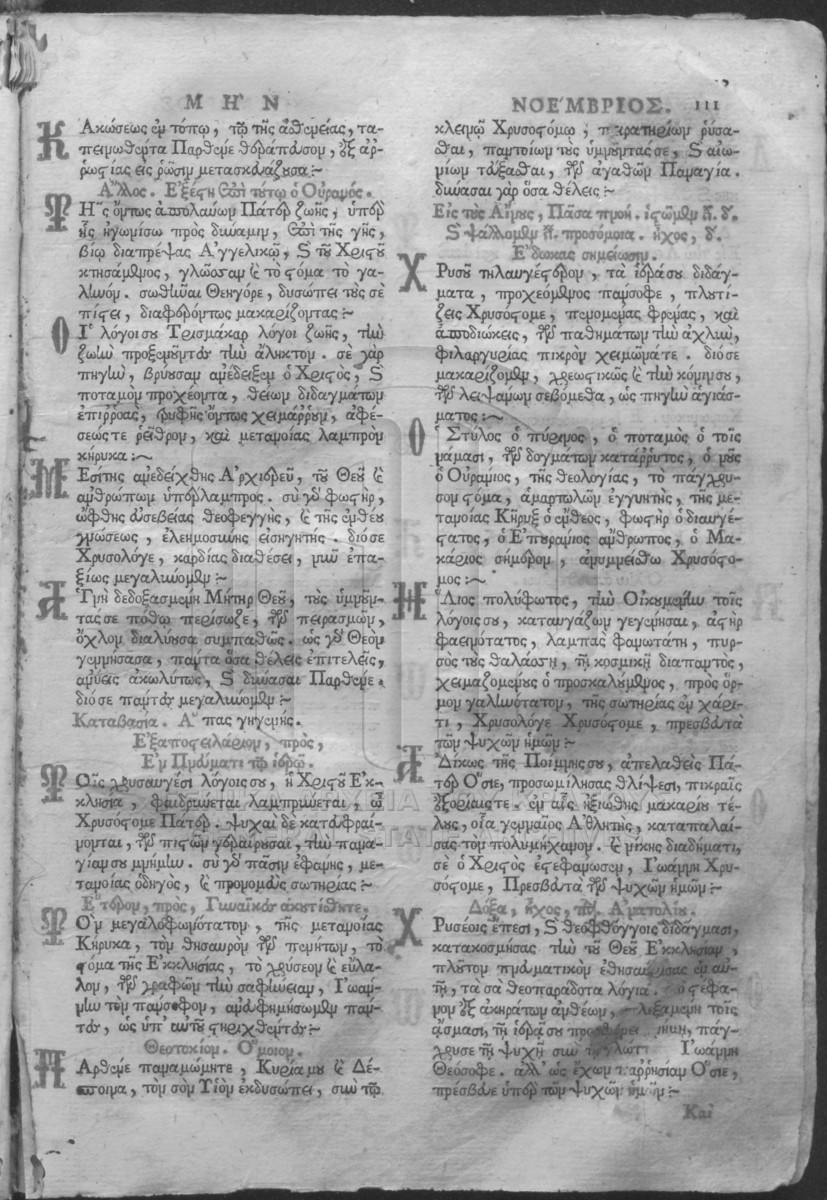 ΜΗΝ
Κ Ακώσεως ἐν τόπῳ, τῷ τῆς ἀσθενείας, τα-
πεινωθέντα Παρθένε θεράπευσον, ἐξ ἀῤ-
ρωστίας εἰς ῥῶσιν μετασκευάζουσα:~
Ἄλλος. Ἐξέστη ἐπὶ τούτῳ ὁ Οὐρανός.
Τ Ης ὄντως ἀπολαύων Πάτερ ζωῆς, ὑπὲρ
ἧς ἠγωνίσω πρὸς δύναμιν, ἐπὶ τῆς γῆς,
βίῳ διαπρέψας Ἀγγελικῷ, καὶ τοῦ Χριστοῦ
κτησάμενος, γλῶσσαν καὶ τὸ στόμα τὸ γα-
λινόν. σωθῆναι Θεηγόρε, δυσώπει τοὺς σὲ
πίστει, διαφερόντως μακαρίζοντας:~
Ο Ἱ λόγοι σου Τρισμάκαρ λόγοι ζωῆς, τὴν
ζωὴν προξενοῦντες τὴν ἄληκτον. σὲ γὰρ
πηγὴν, βρύουσαν ἀνέδειξεν ὁ Χριστὸς, καὶ
ποταμὸν προχέοντα, θείων διδαγμάτων
ἐπιῤῥοὰς, τρυφῆς ὄντως χειμάῤῥουν, ἀφέ-
σεώς τε ῥεῖθρον, καὶ μετανοίας λαμπρὸν
κήρυκα:~
Μ Εσίτης ἀνεδείχθης Ἀρχιερεῦ, τοῦ Θεοῦ καὶ
ἀνθρώπων ὑπέρλαμπρος. σὺ γὰρ φωστὴρ,
ὤφθης εὐσεβείας θεοφεγγὴς, καὶ τῆς ἐνθέου
γνώσεως, ἐλεημοσύνης εἰσηγητής. διό σε
Χρυσολόγε, καρδίας διαθέσει, νῦν ἐπα-
ξίως μεγαλύνομεν:~
Α Ἁγνὴ δεδοξασμένη Μήτηρ Θεοῦ, τοὺς ὑμνοῦν-
τάς σε πόθῳ περίσωζε, τῶν πειρασμῶν,
ὄχλον διαλύουσα συμπαθῶς. ὡς γὰρ Θεὸν
γεννήσασα, πάντα ὅσα θέλεις ἐπιτελεῖς,
ἀνύεις ἀκωλύτως, καὶ δύνασαι Παρθένε.
διό σε πάντες μεγαλύνομεν:~
Καταβασία. Ἅπας γηγενής.
Ἐξαποστειλάριον, πρὸς,
Ἐν Πνεύματι τῷ ἱερῷ.
Τ Οῖς χρυσαυγέσι λόγοις σου, ἡ Χριστοῦ Ἐκ-
κλησία, φαιδρύνεται λαμπρύνεται, ὦ
Χρυσόστομε Πάτερ. ψυχαὶ δὲ κατευφραί-
νονται, τῶν πιστῶν γεραίρουσαι, τὴν πανα-
γίαν σου μνήμην. σὺ γὰρ πᾶσιν ἐφάνης, με-
τανοίας ὁδηγὸς, καὶ προνομεὺς σωτηρίας:~
Ἕτερον, πρὸς, Γυναῖκες ἀκουτίσθητε.
Τ Ὸν μεγαλοφωνότατον, τῆς μετανοίας
Κήρυκα, τὸν θησαυρὸν τῶν πενήτων, τὸ
στόμα τῆς Ἐκκλησίας, τὸ χρύσεον καὶ εὔλα-
λον, τῶν γραφῶν τὴν σαφήνειαν, Ἰωάν-
νην τὸν πάνσοφον, ἀνευφημήσωμεν πάν-
τες, ὡς ὑπ' αὐτοῦ στηριχθέντες:~
Θεοτοκίον. Ὅμοιον.
Π Αρθένε παναμώμητε, Κυρία μου καὶ Δέ-
σποινα, τὸν σὸν Υἱὸν ἐκδυσώπει, σὺν τῷ
ΝΟΕΜΒΡΙΟΣ. 111
κλεινῷ Χρυσοστόμῳ, πικρατηρίων ῥύσα-
σθαι, παντοίων τοὺς ὑμνοῦντάς σε, καὶ αἰω-
νίων τεύξασθαι, τῶν ἀγαθῶν Παναγία.
δύνασαι γὰρ ὅσα θέλεις:~
Εἰς τοὺς Αἴνους, Πᾶσα πνοή. ἱστῶμεν στ. δ.
καὶ ψάλλομεν στ. προσόμοια. ἦχος, δ.
Ἔδωκας σημείωσιν.
Χ Ρυσοῦ τηλαυγέστερον, τὰ ἱερά σου διδάγ-
ματα, προχεόμενος πάνσοφε, πλουτί-
ζεις Χρυσόστομε, πενομένας φρένας, καὶ
ἀποδιώκεις, τῶν παθημάτων τὴν ἀχλὺν,
φιλαργυρίας πικρὸν χειμῶνά τε. διό σε
μακαρίζομεν, χρεωστικῶς καὶ τὴν κόνιν σου,
τῶν λειψάνων σεβόμεθα, ὡς πηγὴν ἁγιάσ-
ματος:~
Ο Ὁ Στύλος ὁ πύρινος, ὁ ποταμὸς ὁ τοῖς
νάμασι, τῶν δογμάτων κατάῤῥυτος, ὁ νοῦς
ὁ Οὐράνιος, τῆς θεολογίας, τὸ πάγχρυ-
σον στόμα, ἁμαρτωλῶν ἐγγυητὴς, τῆς με-
τανοίας Κῆρυξ ὁ ἔνθεος, φωστὴρ ὁ διαυγέ-
στατος, ὁ Ἐπουράνιος ἄνθρωπος, ὁ Μα-
κάριος σήμερον, ἀνυμνείσθω Χρυσόστο-
μος:~
Η Ἥλιος πολύφωτος, τὴν Οἰκουμένην τοῖς
λόγοις σου, καταυγάζων γεγένησαι, ἀστὴρ
φαεινότατος, λαμπὰς φανωτάτη, πυρ-
σὸς τοὺς θαλάσσῃ, τῇ κοσμικῇ διαπαντὸς,
χειμαζομένους ὁ προσκαλούμενος, πρὸς ὅρ-
μον γαληνότατον, τῆς σωτηρίας ἐν χάρι-
τι, Χρυσολόγε Χρυσόστομε, πρεσβευτὰ
τῶν ψυχῶν ἡμῶν:~
Α Ἀδίκως τῆς Ποίμνης σου, ἀπελαθεὶς Πά-
τερ Ὅσιε, προσωμίλησας θλίψεσι, πικραῖς
ἐξορίαις τε. ἐν αἷς ἠξιώθης μακαρίου τέ-
λους, οἷα γενναῖος Ἀθλητὴς, καταπαλαί-
σας τὸν πολυμήχανον. καὶ νίκης διαδήματι,
σὲ ὁ Χριστὸς ἐστεφάνωσεν, Ἰωάννη Χρυ-
σόστομε, Πρεσβευτὰ τῶν ψυχῶν ἡμῶν:~
Δόξα, ἦχος, Ἀνατολίου.
Χ Ρυσέοις ἔπεσι, καὶ θεοφθόγγοις διδάγμασι,
κατακοσμήσας τὴν τοῦ Θεοῦ Ἐκκλησίαν,
πλοῦτον πνευματικὸν ἐθησαύρισας ἐν αὐ-
τῇ, τὰ σὰ θεοπαράδοτα λόγια. στέφα-
νον ἐξ ἀκηράτων ἀνθέων, πλεξάμενοι τοῖς
ᾄσμασι, τῇ ἱερᾷ σου μνήμῃ, πάγ-
χρυσε τῇ ψυχῇ σὺν τῇ γλώττῃ Ἰωάννη
Θεόσοφε. ἀλλ' ὡς ἔχων παῤῥησίαν Ὅσιε,
πρέσβευε ὑπὲρ τῶν ψυχῶν ἡμῶν:~
Καὶ